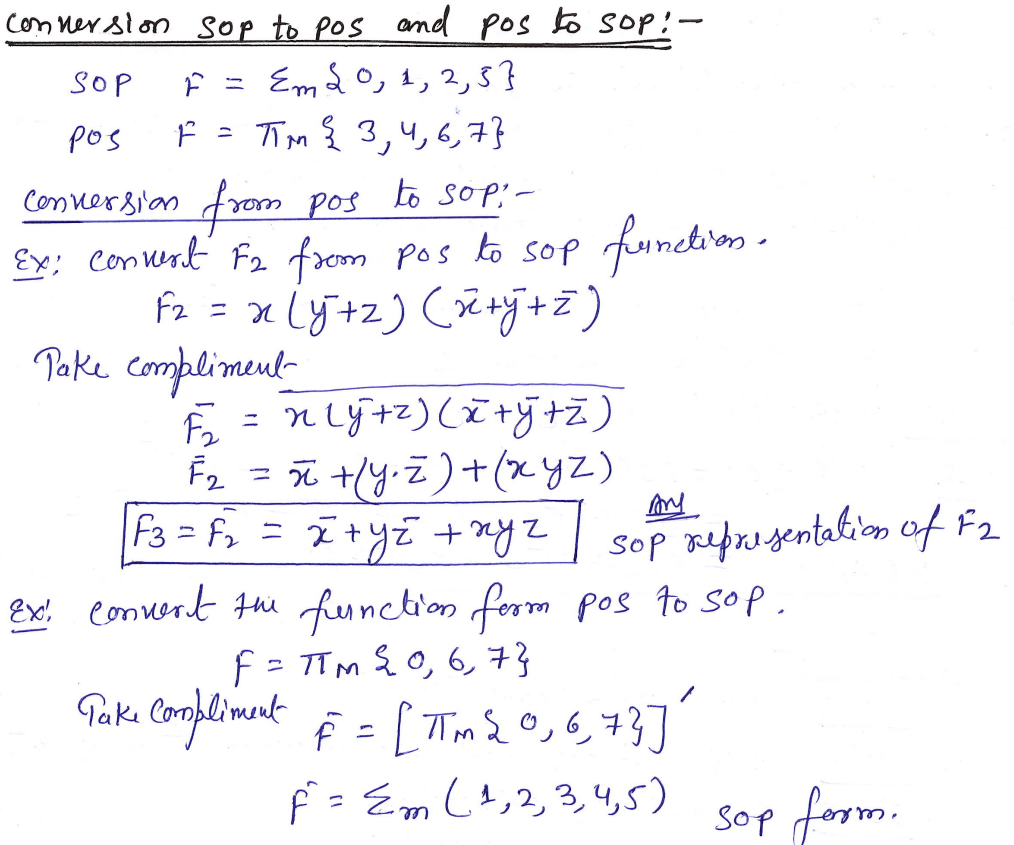 conversion SOP to POS and POS to SOP:-
SOP F = Σm{0, 1, 2, 5}
POS F = πM{3, 4, 6, 7}
conversion from POS to SOP:-
Ex: convert F₂ from POS to SOP function.
F₂ = x(ȳ+z)(x̄+ȳ+z̄)
Take compliment
F̄₂ = \overline{x(ȳ+z)(x̄+ȳ+z̄)}
F̄₂ = x̄+(y.z̄)+(xyz)
F3 = F̄₂ = x̄+yz̄+xyz Ans SOP representation of F₂
Ex: convert the function form POS to SOP.
F = πM{0, 6, 7}
Take Compliment F̄ = [πM{0, 6, 7}]′
F̄ = Σm(1,2,3,4,5) SOP form.